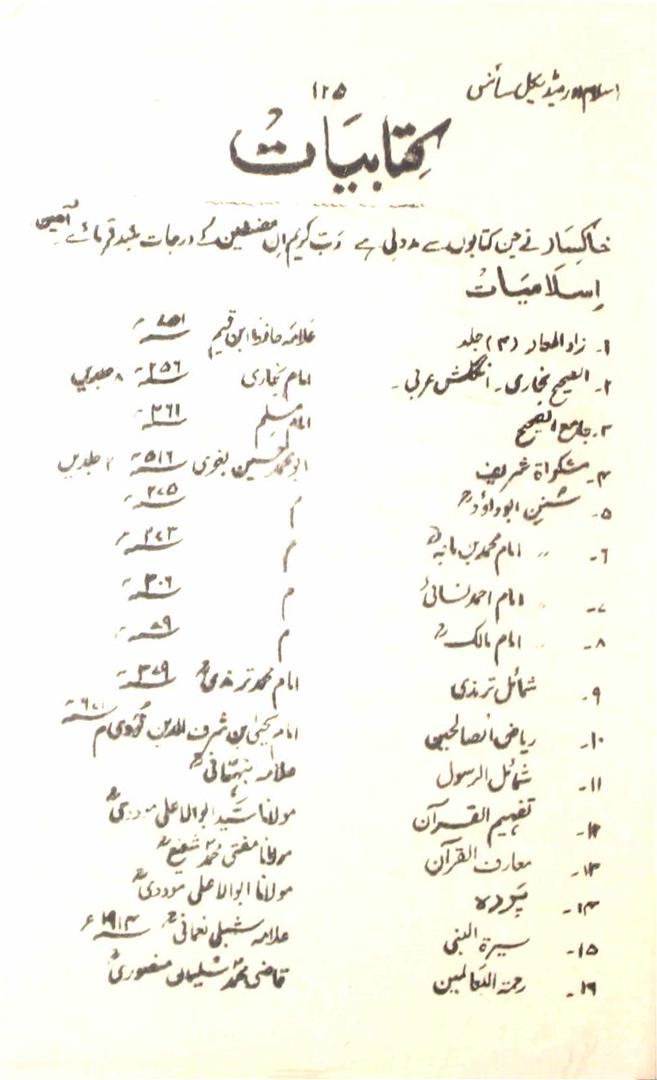 اسلام اور میڈیکل سائنس ۱۲۵
کتابیات
خاکسار نے جن کتابوں سے مدد لی ہے ربّ کریم ان مصنفین کے درجات بلند فرمائے آمین
اِسلامیات
۱۔ زاد المعاد (۴) جلد علامہ حافظ ابن قیم ۷۵۱ھ
۲۔ الصحیح بخاری۔ انگلش عربی۔ امام بخاری ۲۵۶ھ ۸ جلدیں
۳۔ جامع الصحیح امام مسلم ۲۶۱ھ
۴۔ مشکواۃ شریف ابو محمد حسین بغوی ۵۱۶ھ ۲ جلدیں
۵۔ سنن ابو داؤدؒ م ۲۷۵ھ
۶۔ 〃 امام محمد بن ماجہؒ م ۲۷۳ھ
۷۔ 〃 امام احمد نسائیؒ م ۳۰۶ھ
۸۔ 〃 امام مالکؒ م
۹۔ شمائل ترمذی امام محمد ترمذیؒ
۱۰۔ ریاض الصالحین امام یحییٰ بن شرف الدین نووی م
۱۱۔ شمائل الرسول علامہ نبہانیؒ
۱۲۔ تفہیم القرآن مولانا سیّد ابوالاعلی مودودیؒ
۱۳۔ معارف القرآن مولانا مفتی محمد شفیعؒ
۱۴۔ پردہ مولانا ابوالاعلی مودودیؒ
۱۵۔ سیرۃ النبی علامہ شبلی نعمانیؒ ۱۹۱۴ء
۱۶۔ رحمۃ اللعالمین قاضی محمد سلیمان منصوریؒ